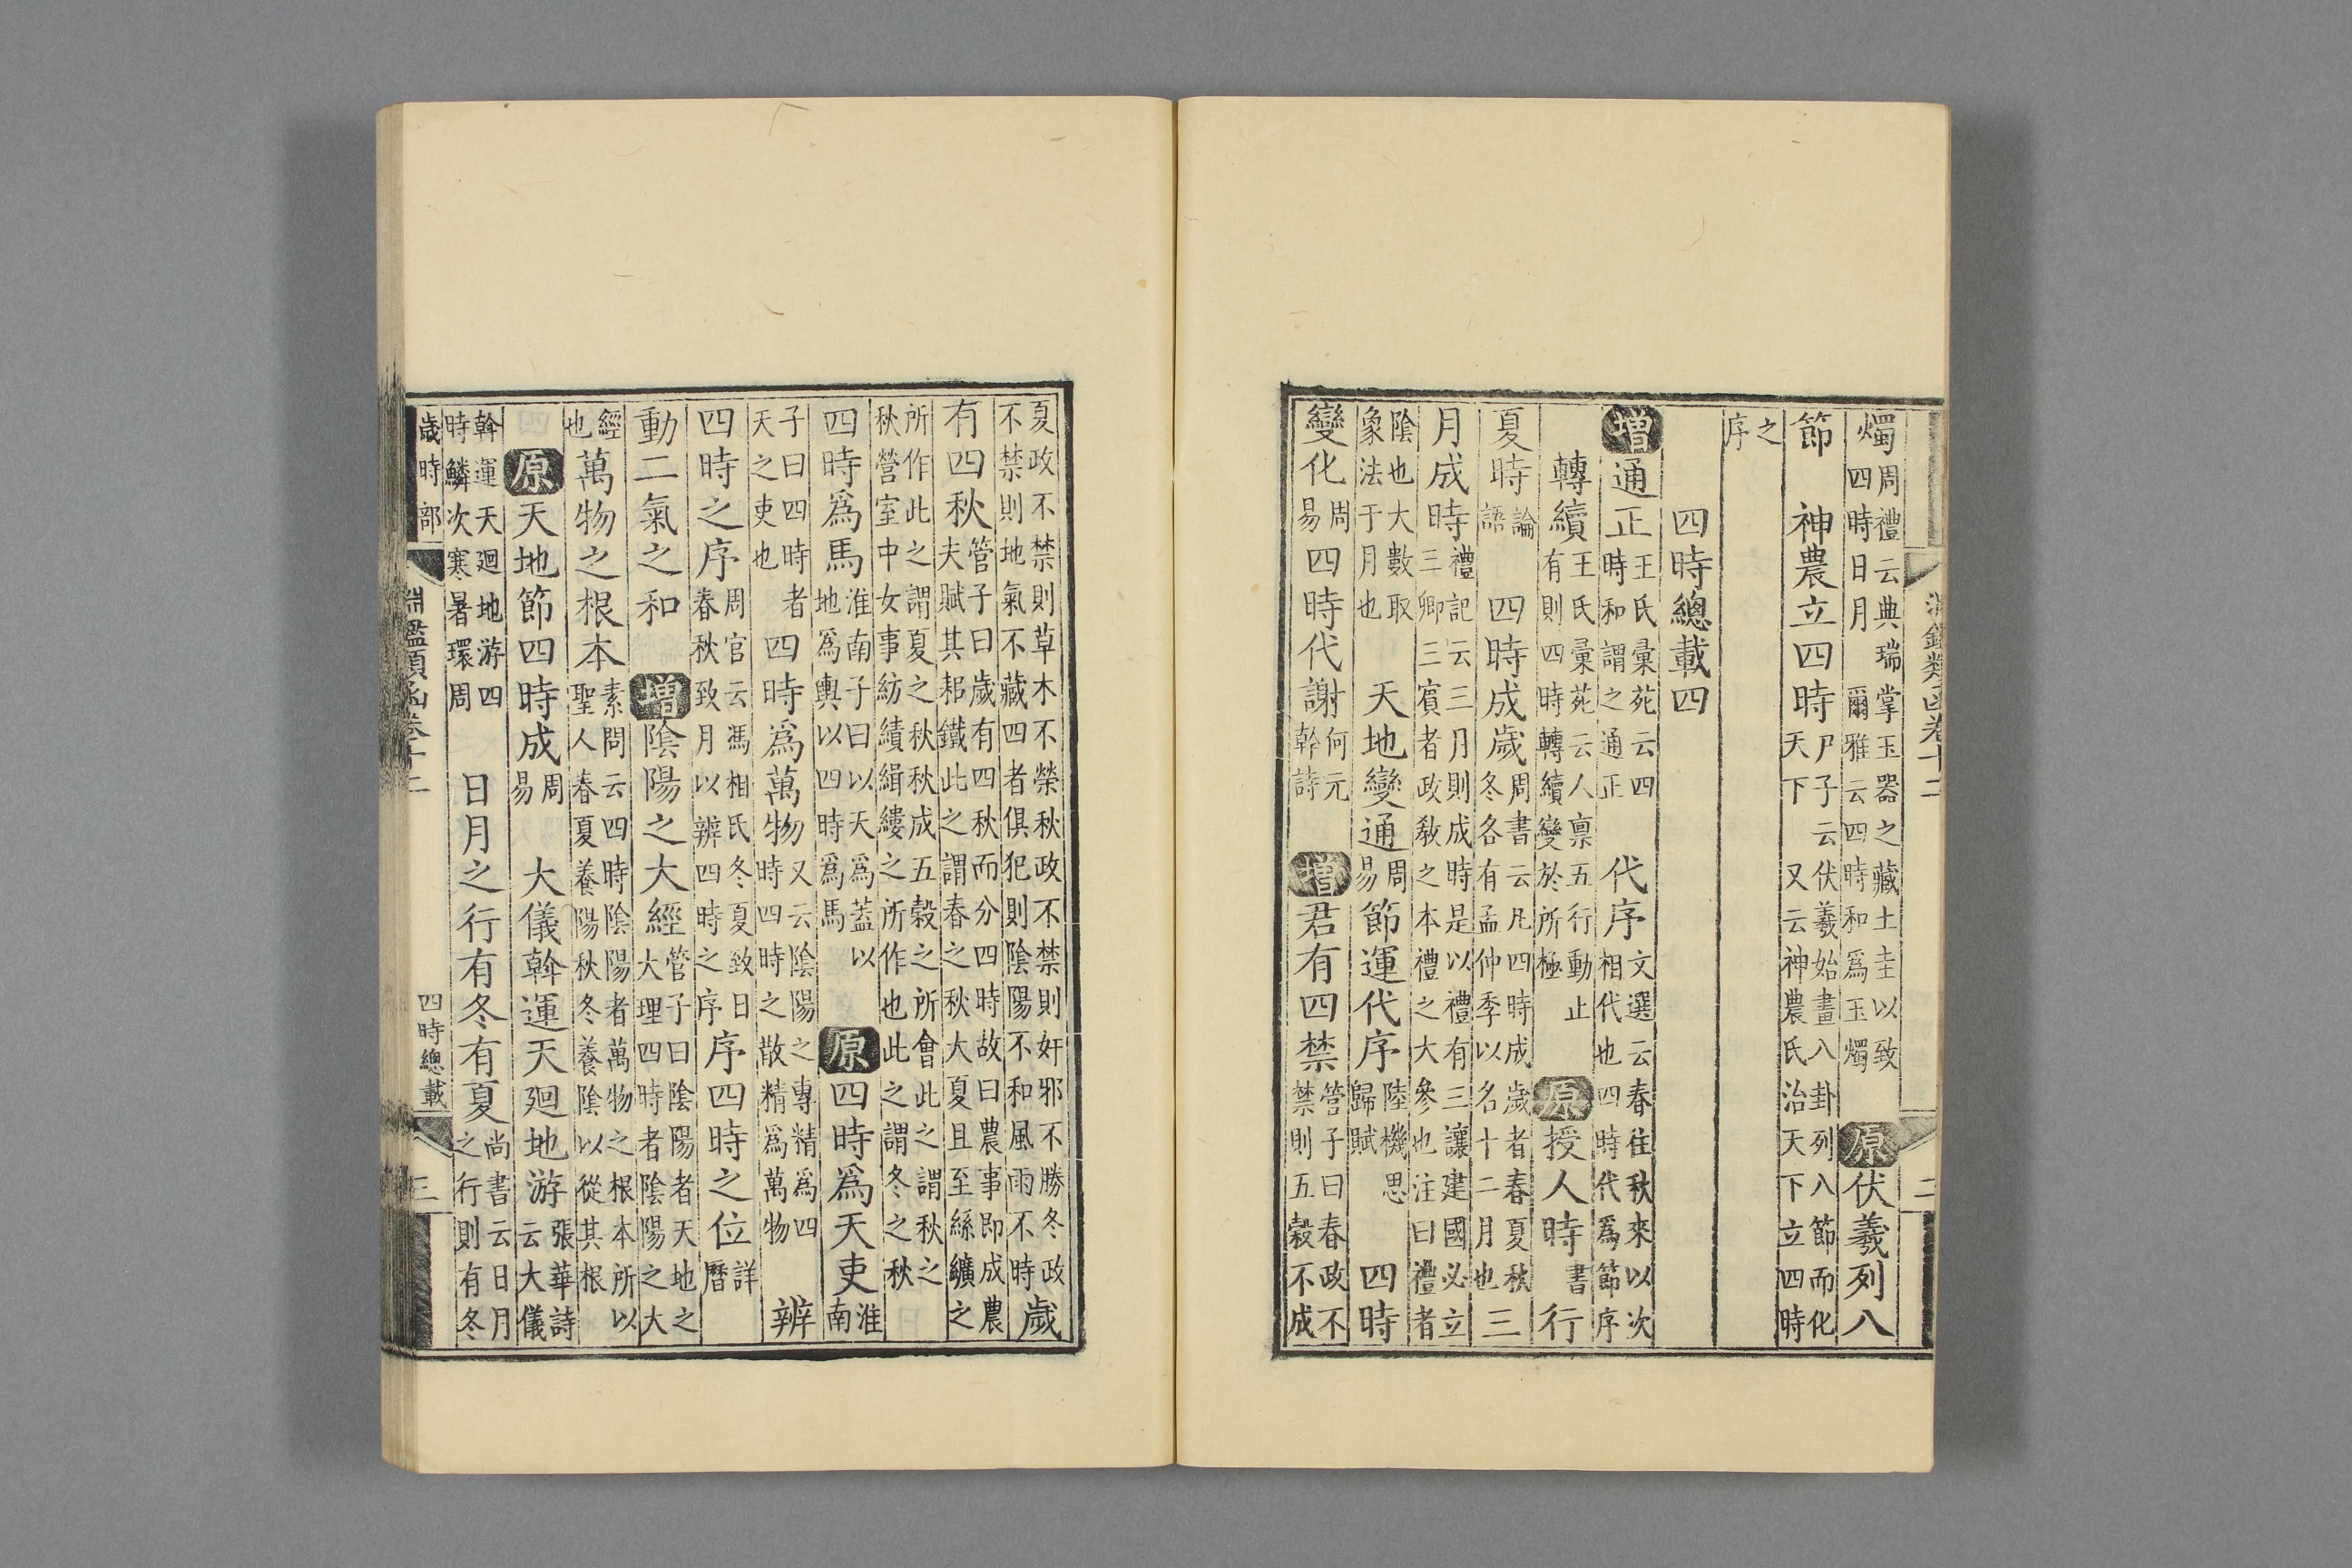 淵鑑類函卷十二 二
燭周禮云典瑞掌玉器之藏土圭以致四時日月 爾雅云四時和爲玉燭 原伏羲列八
節 神農立四時尸子云伏羲始畫八卦列八節而化天下 又云神農氏治天下立四時
之序
四時總載四
增通正王氏彙苑云四時和謂之通正 代序文選云春往秋來以次相代也四時代爲節序
轉續王氏彙苑云人禀五行動止有則四時轉續變於所極 原授人時書 行
夏時論語 四時成歲周書云凡四時成歲者春夏秋冬各有孟仲季以名十二月也 三
月成時禮記云三月則成時是以禮有三讓建國必立三卿三賓者政敎之本禮之大參也注曰禮者
陰也大數取象法于月也 天地變通周易 節運代序陸機思歸賦 四時
變化周易 四時代謝何元幹詩 增君有四禁管子曰春政不禁則五穀不成
夏政不禁則草木不榮秋政不禁則奸邪不勝冬政不禁則地氣不藏四者俱犯則陰陽不和風雨不時 歲
有四秋管子曰歲有四秋而分四時故曰農事即成農夫賦其耜鐵此之謂春之秋大夏且至絲纊之
所作此之謂夏之秋秋成五穀之所會此之謂秋之秋營室中女事紡績緝縷之所作也此之謂冬之秋
四時爲馬淮南子曰以天爲蓋以地爲輿以四時爲馬 原四時爲天吏淮南
子曰四時者天之吏也 四時爲萬物又云陰陽之專精爲四時四時之散精爲萬物 辨
四時之序周官云馮相氏冬夏致日春秋致月以辨四時之序 序四時之位詳曆
動二氣之和 增陰陽之大經管子曰陰陽者天地之大理四時者陰陽之大
經也 萬物之根本素問云四時陰陽者萬物之根本所以聖人春夏養陽秋冬養陰以從其根
原天地節四時成周易 大儀斡運天廻地游張華詩云大儀
斡運天廻地游四時鱗次寒暑環周 日月之行有冬有夏尚書云日月之行則有冬
歲時部 淵鑑類函卷十二 四時總載 三